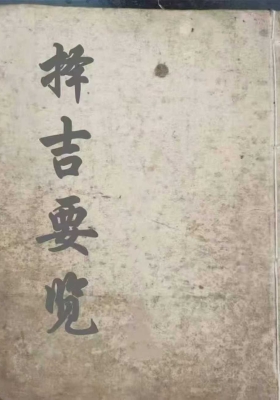 择吉要览